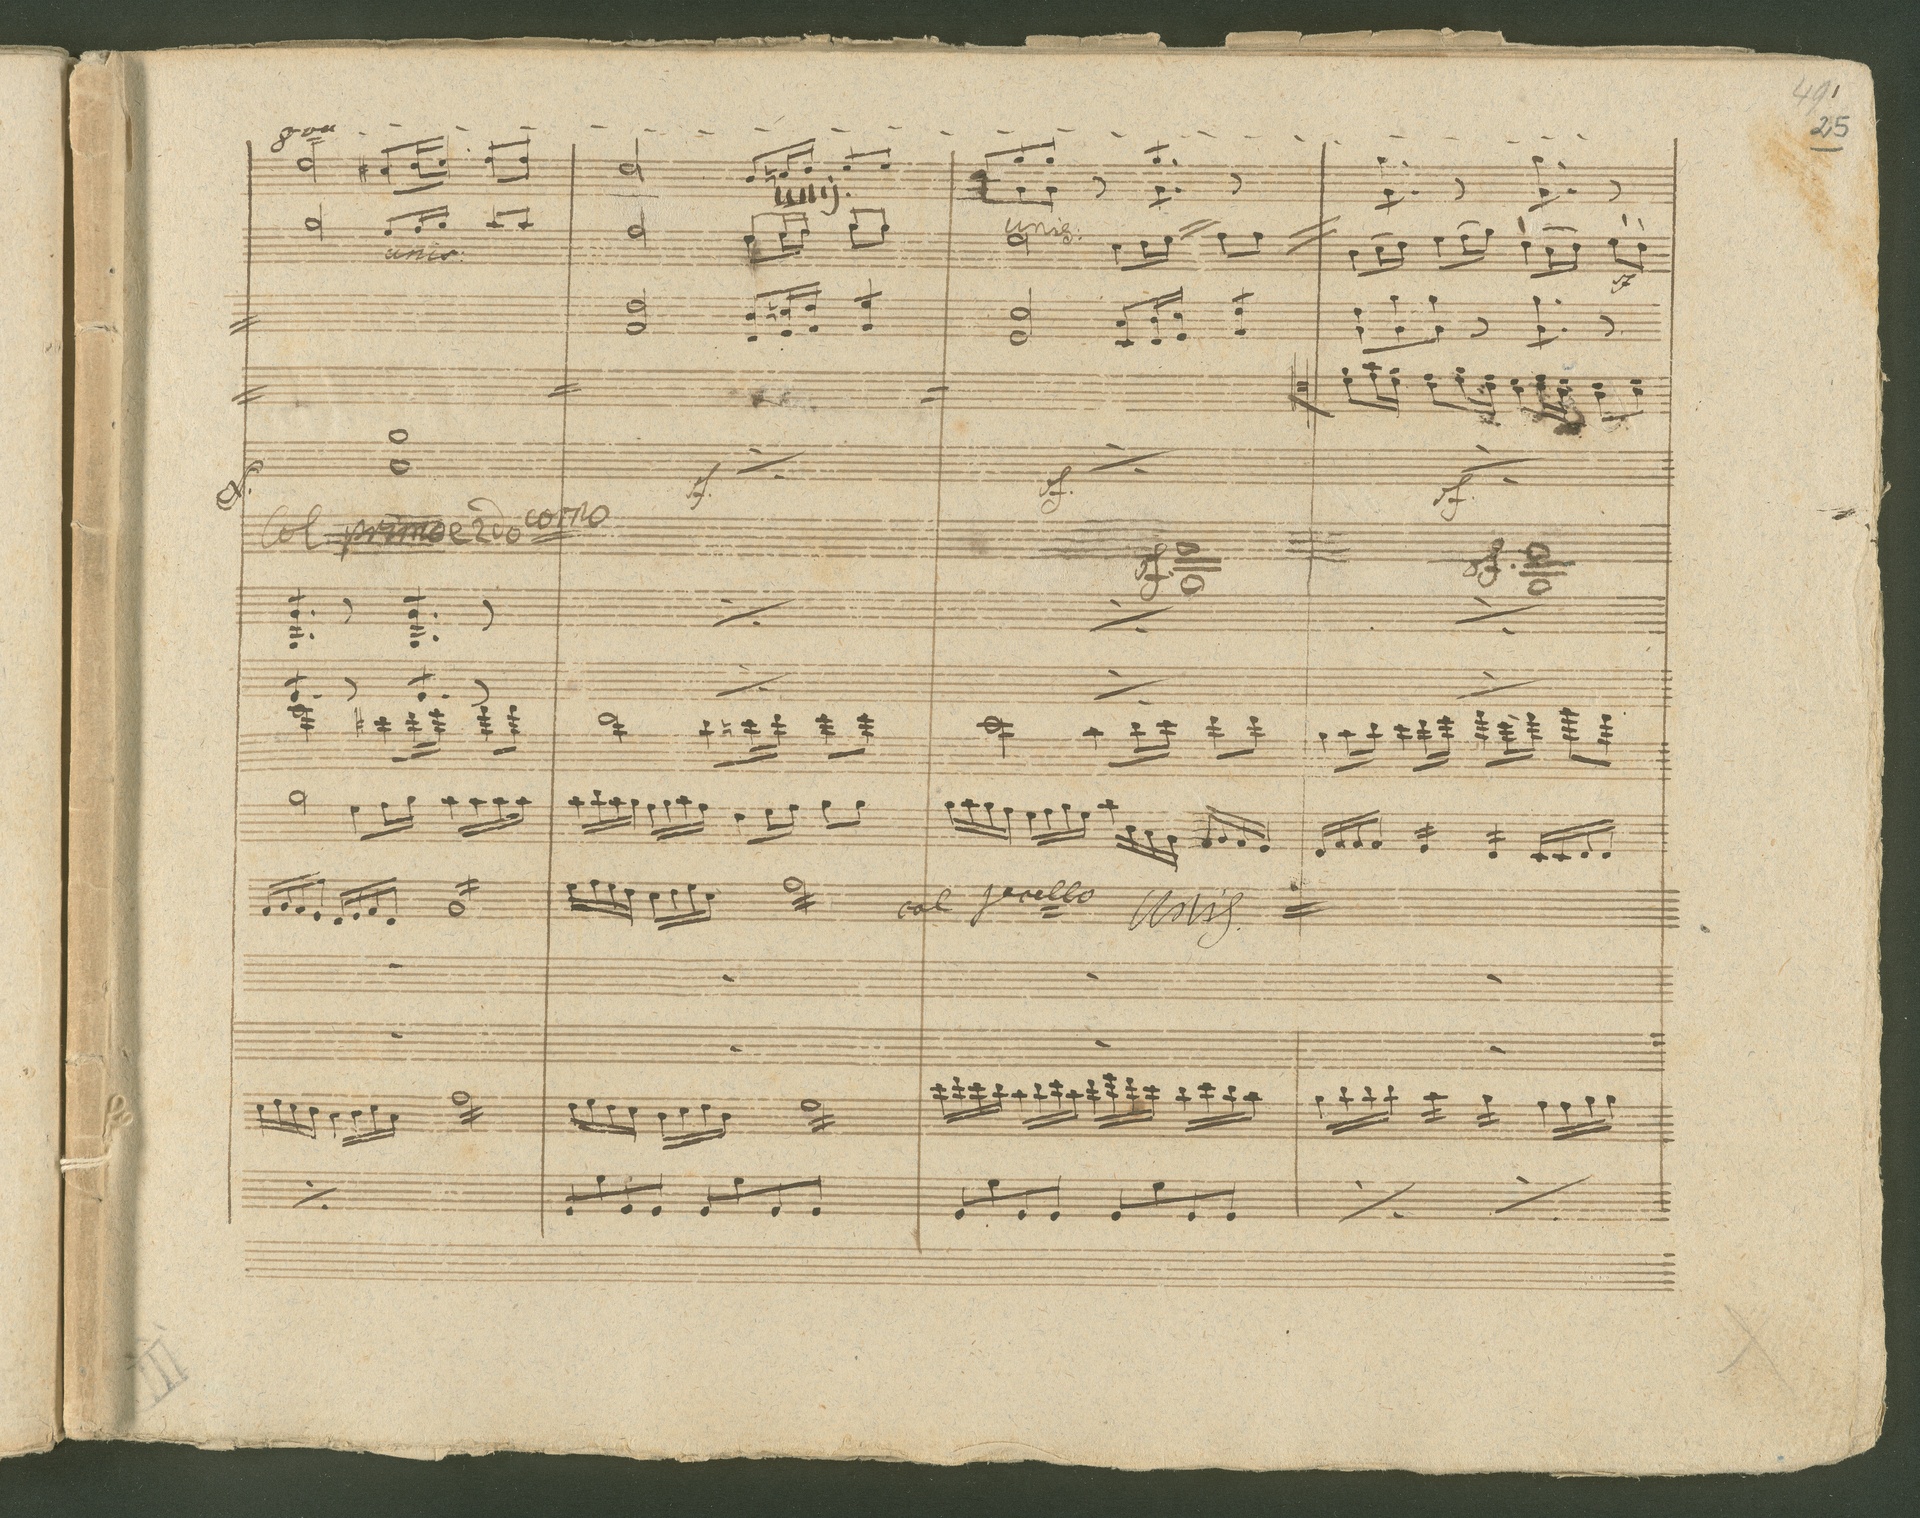 49
25
8va
unis.
unis.
unis:
sf
sf.
sf.
sf.
sf.
Col primo e 2do corno
sf.
sf.
col Vcello Unis.
III